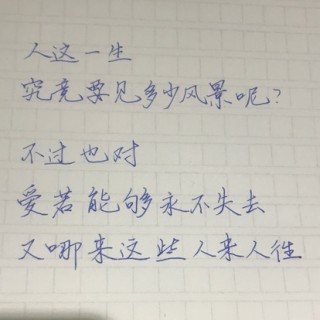 人这一生
究竟要见多少风景呢?
不过也对
爱若能够永不失去
又哪来这些人来人往